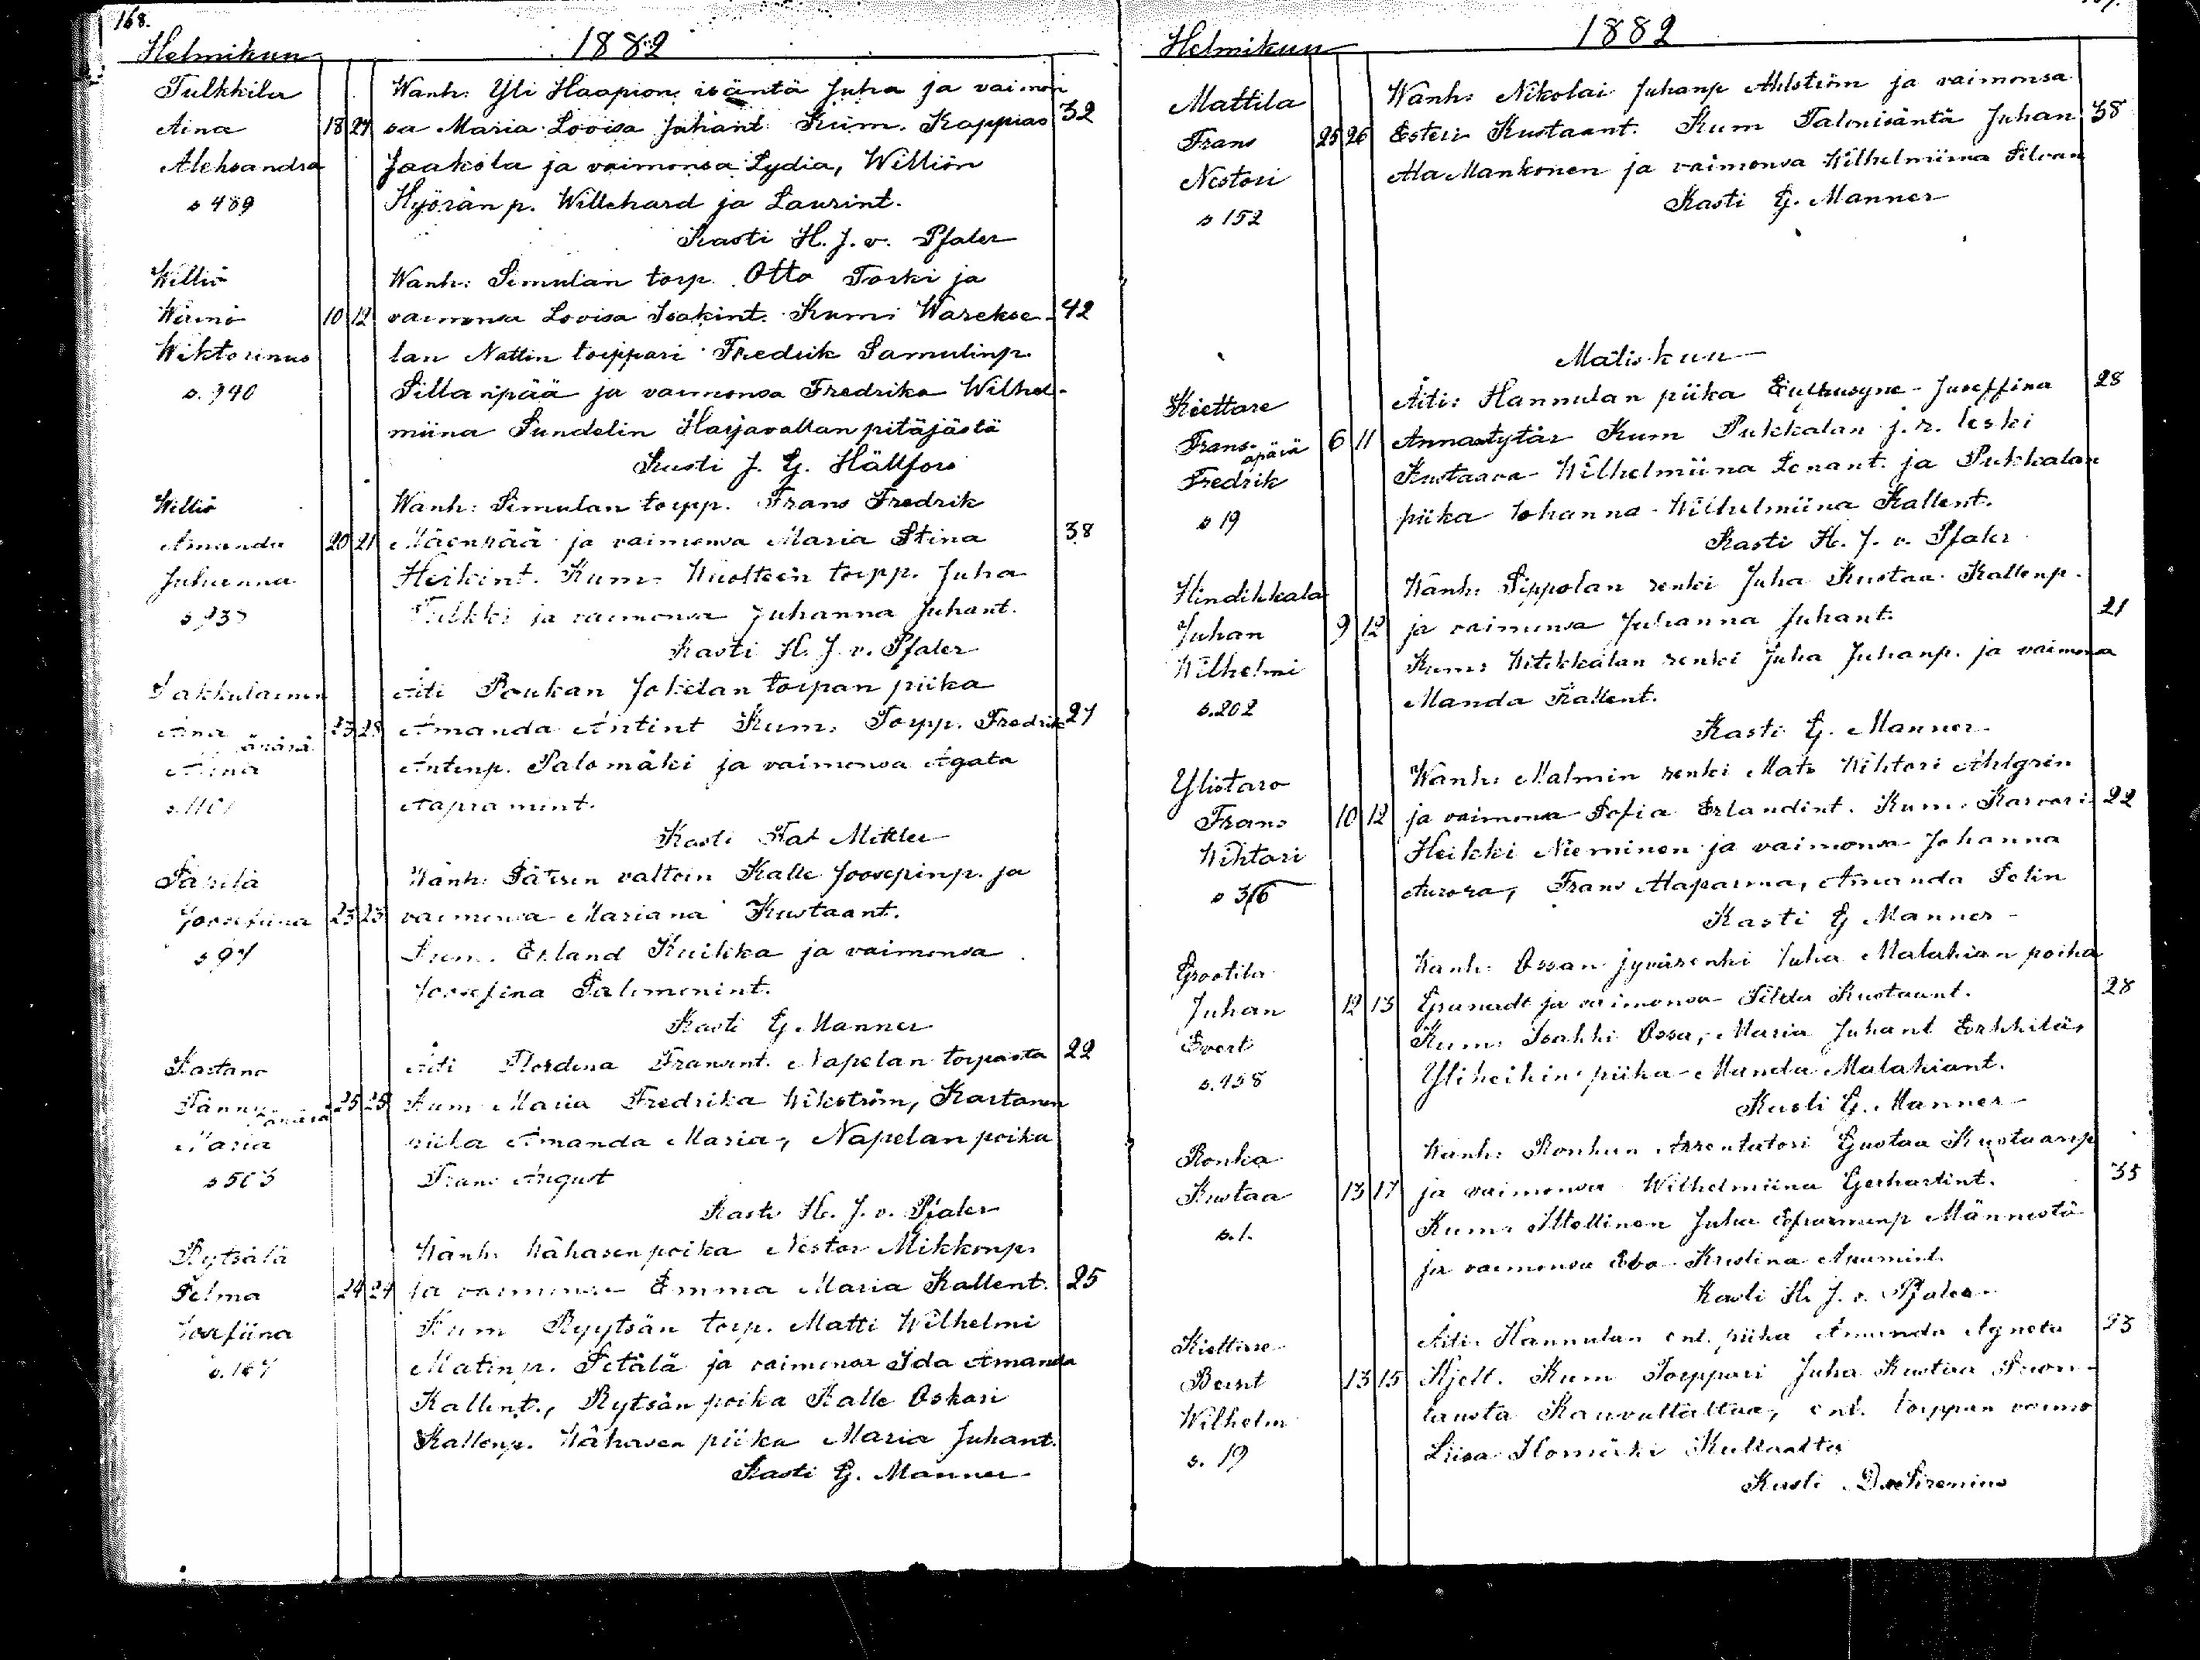 168.
Helmikun 1882
Tulkkila Wanh: Yli Haapion isäntä Juha ja vaimon
Aina 18 24 sa Maria Lovisa Juhant. Kum. Kappias 32
Aleksandra Jaakola ja vaimonsa Lydia, Williön
s 489 Hyörän p. Willehard ja Laurint.
Kasti H. J. v. Pfaler
Williö Wanh: Simulan torp. Otto Torki ja
Wäinö 10 12 vaimonsa Lovisa Isakint. Kumi Warekse- 42
Wiktorinus lan Nattin torppari Fredrik Samulinp.
s. 940 Sillanpää ja vaimonsa Fredrika Wilhel-
miina Sundelin Harjavallan pitäjästä
Kasti J. G. Hällfors
Williö Wanh: Simulan torpp. Frans Fredrik
Amanda 20 21 Mäenpää ja vaimonsa Maria Stina 38
Juhanna Heikint. Kum. torpp. Juha
Tulkki ja vaimonsa Juhanna Juhant.
Kasti H. J. v. Pfaler
Äiti Poukan Jokelan torpan piika
Aina 23 Amanda Antint Kum: Torpp. Fredrik 27
Antinp. Palomäki ja vaimonsa Agata
Kasti
Wanh: Kalle Joosepinp. ja
Joosefiina 23 23 vaimonsa Mariana Kustaant.
s 97 Kum. Erland Kuikka ja vaimonsa
Joosefina Salomonint.
Kasti G. Manner
Kastano Äiti Fransint. Napelan torpasta 22
25 25 Kum Maria Fredrika Wikström, Kastanon
Maria piika Amanda Maria, Napelan poika
s 503 Frans August
Kasti H. J. v. Pfaler
Rytsälä Wanh: Wähäsen poika Nestor Mikkonp.
Selma 24 24 ja vaimonsa Emma Maria Kallent. 25
Josefiina Kum Ryytsän torp. Matti Wilhelmi
s. 167 Matinp. Setälä ja vaimonsa Ida Amanda
Kallent., Rytsän poika Kalle Oskari
Kallenp. Wähäsen piika Maria Juhant.
Kasti G. Manner
Helmikun 1882
Mattila Wanh: Nikolai Juhanp Ahlström ja vaimonsa
Frans 25 26 Esteri Kustaant. Kum Talonisäntä Juhan 38
Nestori Ala Mankonen ja vaimonsa Wilhelmiina Silvan
s 152 Kasti G. Manner
Maliskuu
Kiettare Äiti: Hannulan piika Juseffina 28
Frans 6 11 Annantytär Kum Pukkalan j. r. leski
apärä
Fredrik Kustaava Wilhelmiina Lenant. ja Pukkalan
s 19 piika Johanna Wilhelmiina Kallent.
Kasti H. J. v. Pfaler
Hindikkala Wanh: Sippolan renki Juha Kustaa Kallenp.
Juhan 9 12 ja vaimonsa Juhanna Juhant. 21
Wilhelmi Kum: renki Juha Juhanp. ja vaimonsa
s. 202 Manda Kallent.
Kasti G. Manner
Ylistaro Wanh: Malmin renki Mats Wihtori Ahlgrén
Frans 10 12 ja vaimonsa Sofia Erlandint. Kum. Karvari 22
Wihtori Heikki Nieminen ja vaimonsa Johanna
s 316 Aurora, Frans Alaparma, Amanda
Kasti G Manner
Grootila Wanh: Ossan jyvärenki Juha Malakian poika
Juhan 12 13 Granadt ja vaimonsa Kustaant. 28
Evert Kum: Isakki Ossa, Maria Juhant Erkkilä,
s. 458 Yliheikin piika Manda Malakiant.
Kasti G. Manner
Ronka Wanh: Ronkan Arrentatori Gustaa Kustaanp
Kustaa 13 17 ja vaimonsa Wilhelmiina Gerhartint. 35
s. 1. Kum: Juha Männistö
ja vaimonsa Eva Kristina
Kasti H. J. v. Pfaler
Kiettare Äiti: Hannulan ent. piika Amanda Agneta 23
Bernt 13 15 Kjell. Kum Torppari Juha Kustaa
Wilhelm lausta Kauvattaltaa, ent. torppan vaimo
s. 19 Liisa Ilomäki Kullaalta
Kasti